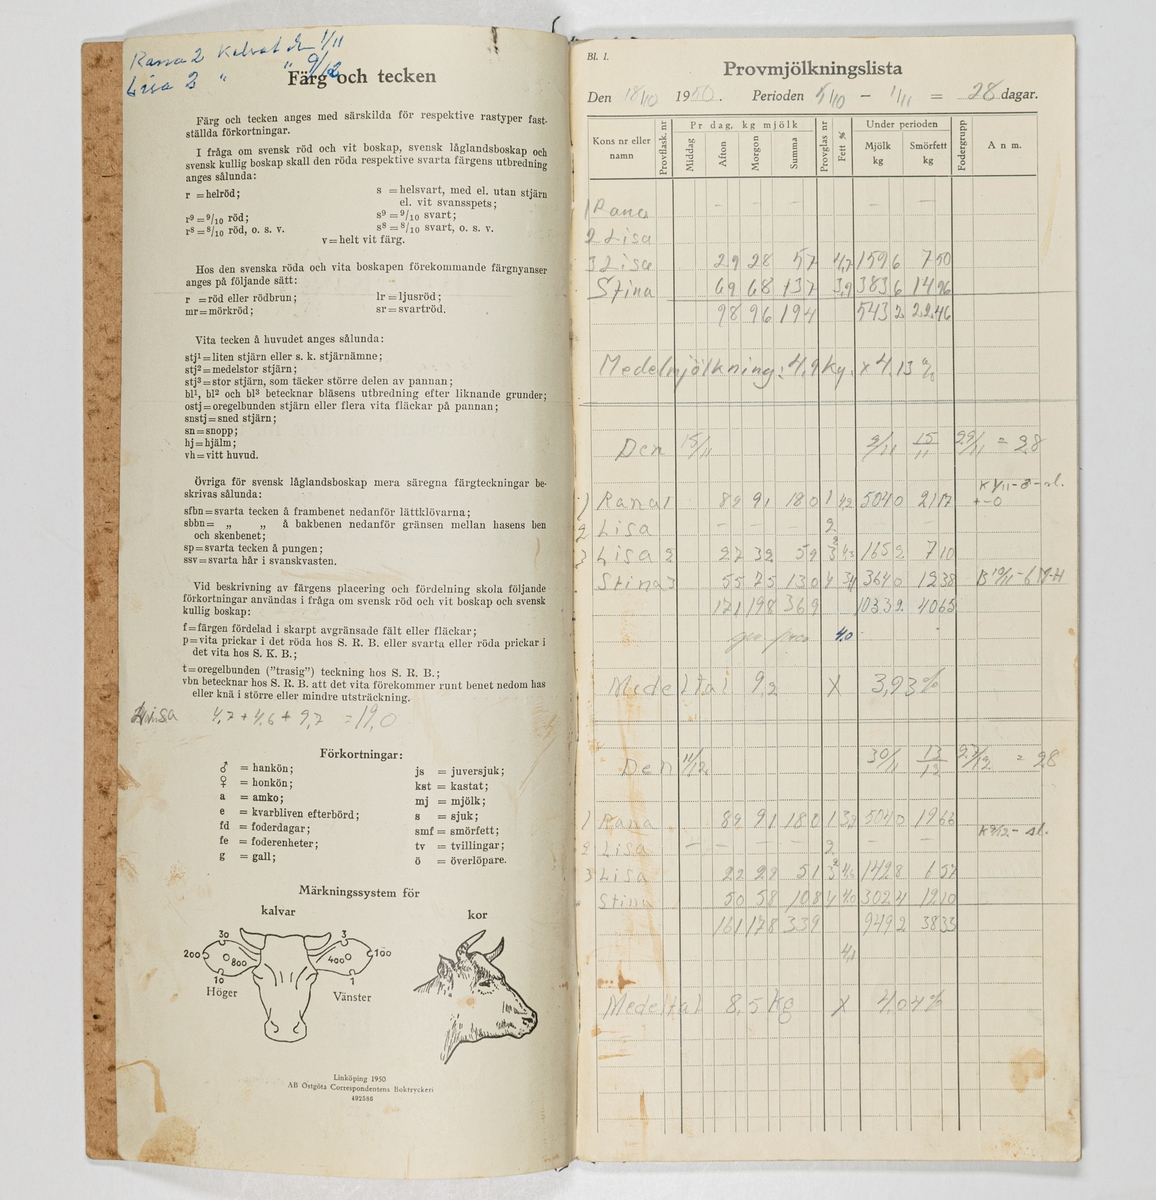 Rana 2 Kalvat den 1/11
Lisa 3 " " 9/12
Färg och tecken
Färg och tecken anges med särskilda för respektive rastyper fast-
ställda förkortningar.
I fråga om svensk röd och vit boskap, svensk låglandsboskap och
svensk kullig boskap skall den röda respektive svarta färgens utbredning
anges sålunda:
r = helröd; s = helsvart, med el. utan stjärn
el. vit svansspets;
r⁹ = 9/10 röd; s⁹ = 9/10 svart;
r⁸ = 8/10 röd, o. s. v. s⁸ = 8/10 svart, o. s. v.
v = helt vit färg.
Hos den svenska röda och vita boskapen förekommande färgnyanser
anges på följande sätt:
r = röd eller rödbrun; lr = ljusröd;
mr = mörkröd; sr = svartröd.
Vita tecken å huvudet anges sålunda:
stj¹ = liten stjärn eller s. k. stjärnämne;
stj² = medelstor stjärn;
stj³ = stor stjärn, som täcker större delen av pannan;
bl¹, bl² och bl³ betecknar bläsens utbredning efter liknande grunder;
ostj = oregelbunden stjärn eller flera vita fläckar på pannan;
snstj = sned stjärn;
sn = snopp;
hj = hjälm;
vh = vitt huvud.
Övriga för svensk låglandsboskap mera säregna färgteckningar be-
skrivas sålunda:
sfbn = svarta tecken å frambenet nedanför lättklövarna;
sbbn = „ „ å bakbenen nedanför gränsen mellan hasens ben
och skenbenet;
sp = svarta tecken å pungen;
ssv = svarta hår i svanskvasten.
Vid beskrivning av färgens placering och fördelning skola följande
förkortningar användas i fråga om svensk röd och vit boskap och svensk
kullig boskap:
f = färgen fördelad i skarpt avgränsade fält eller fläckar;
p = vita prickar i det röda hos S. R. B. eller svarta eller röda prickar i
det vita hos S. K. B.;
t = oregelbunden ("trasig") teckning hos S. R. B.;
vbn betecknar hos S. R. B. att det vita förekommer runt benet nedom has
eller knä i större eller mindre utsträckning.
Lisa 4,7 + 4,6 + 9,7 = 19,0
Förkortningar:
♂ = hankön; js = juversjuk;
♀ = honkön; kst = kastat;
a = amko; mj = mjölk;
e = kvarbliven efterbörd; s = sjuk;
fd = foderdagar; smf = smörfett;
fe = foderenheter; tv = tvillingar;
g = gall; ö = överlöpare.
Märkningssystem för
kalvar kor
30 3
200 800 400 100
10 1
Höger Vänster
Linköping 1950
AB Östgöta Correspondentens Boktryckeri
492586
Bl. 1.
Provmjölkningslista
Den 18/10 1950. Perioden 5/10 – 1/11 = 28 dagar.
Kons nr eller namn Provflask. nr Pr dag, kg mjölk Middag Afton Morgon Summa Provglas nr Fett % Under perioden Mjölk kg Smörfett kg Fodergrupp Anm.
1 Rana – – – –
2 Lisa
3 Lisa 29 28 57 4,7 1596 750
Stina 69 68 137 3,9 3836 1496
98 96 194 5432 2246
Medelmjölkning: 4,9 kg. x 4,13 %
Den 15/11 2/11 15/11 29/11 = 28
1) Rana 1 89 91 180 1 4,2 5040 2117
2 Lisa – – – 2
3 Lisa 2 27 32 59 3 4,3 1652 710
Stina 3 55 75 130 4 3,4 3640 1238
171 198 369 10332 4065
4,0
Medeltal 9,2 X 3,93 %
Den 11/12 30/11 13/12 27/12 = 28
1 Rana 89 91 180 1 3,9 5040 1966
2 Lisa – – – 2 – –
3 Lisa 22 29 51 3 4,6 1428 657
Stina 50 58 108 4 4,0 3024 1210
161 178 339 9492 3833
4,1
Medeltal 8,5 kg X 4,04 %